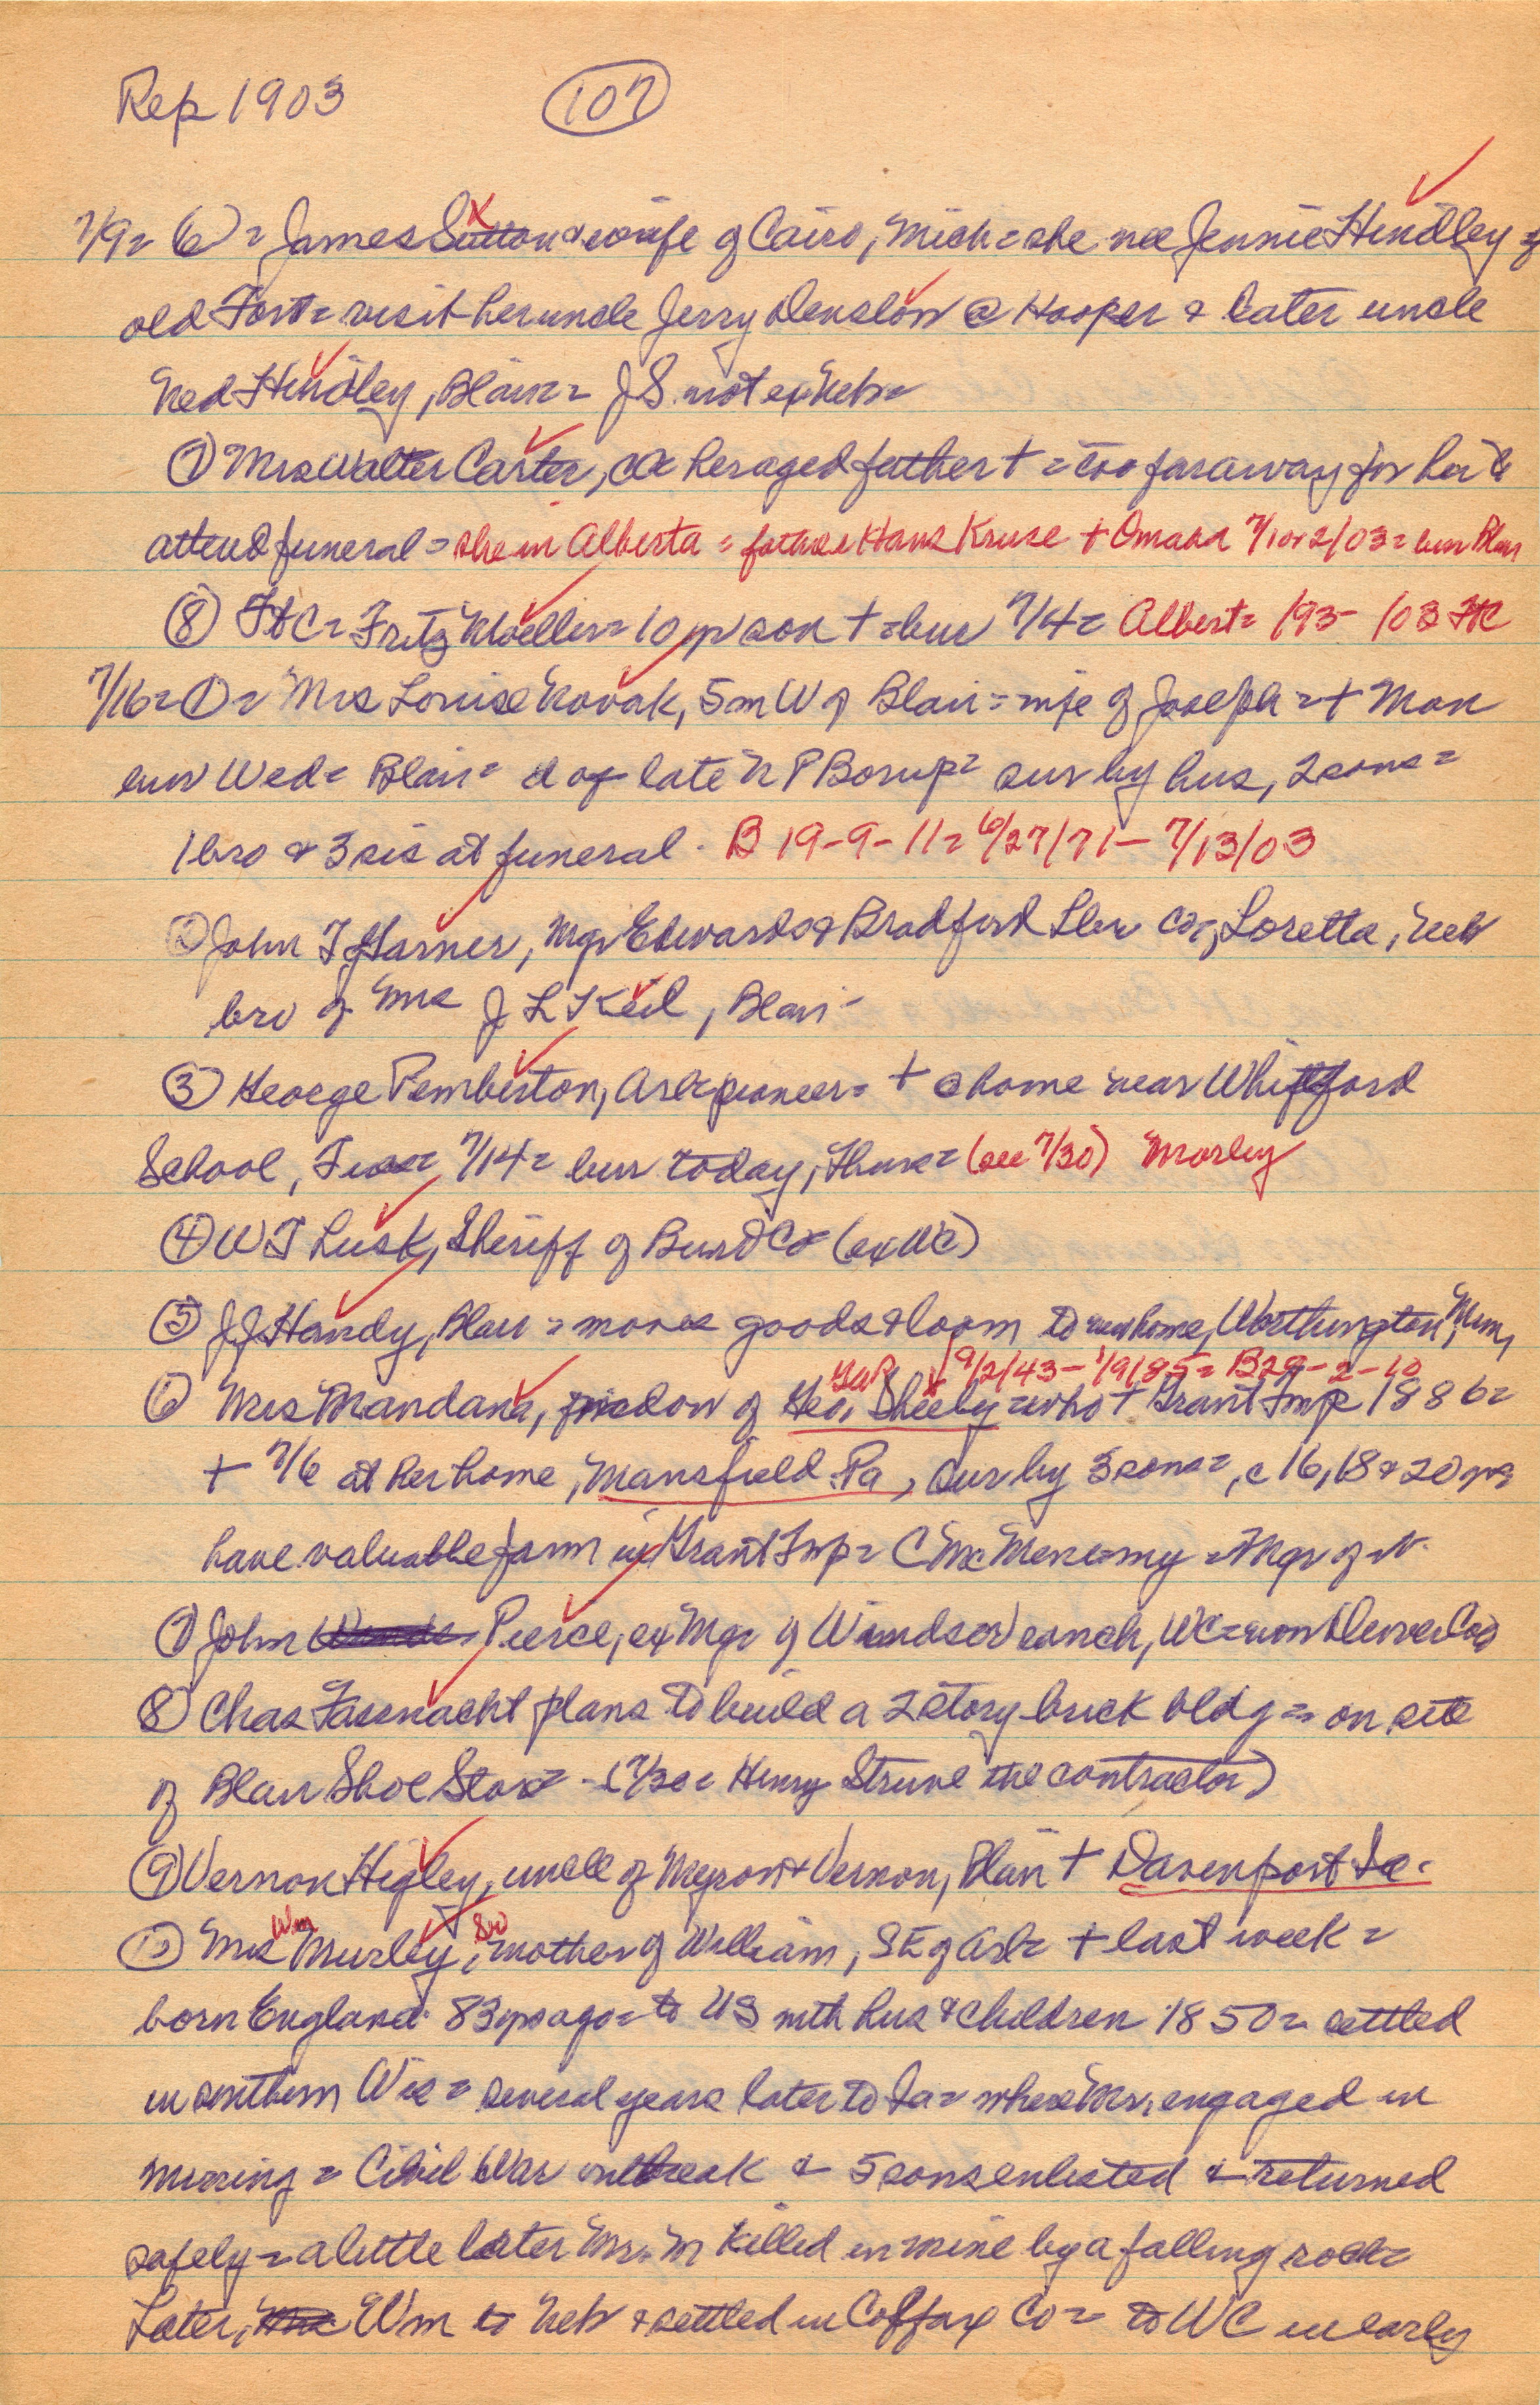 Rep 1903 (107)
7/9 = 6) = James Sutton & wife of Cairo, Mich = she nee Jennie Hindley of
old Fort = visit her uncle Jerry Denslow @ Hooper & later uncle
Ned Hindley, Blair = J S not ex Neb =
(7) Mrs Walter Carter, her aged father + = too far away for her to
attend funeral = she in Alberta = father Hans Kruse + Omaha 7/10 or 2/03 = bur Blair
(8) Ft C = Fritz Moeller = 10 yr son + = bur 7/14 = Albert = 193 - /03 Ft C
7/16 = (1) = Mrs Louise Novak, 5 m W of Blair = wife of Joseph = + Mon
bur Wed = Blair = d of late N P Borup = sur by hus, 2 sons =
1 bro & 3 sis at funeral. B 19-9-11 = 6/27/71 - 7/13/03
(2) John T Harner, mgr Edwards & Bradford Lbr Co, Loretta, Neb
bro of Mrs J L Keil, Blair -
(3) George Pemberton, Arl pioneer = + @ home near Whitford
School, Tues = 7/14 = bur today, Thurs = (see 7/30) Morley
(4) W T Lusk, Sheriff of Burt Co (ex WC)
(5) J J Handy, Blair = moves goods & loom to new home, Worthington, Minn,
9/2/43 - 1/9/85 = B 29-2-10
(6) Mrs Mandana, widow of Geo, Sheely = who + Grant Twp 1886 =
+ 7/6 at her home, Mansfield Pa, sur by 3 sons =, c 16, 18 & 20 yrs
have valuable farm in Grant Twp = C Mc Menemy = Mgr of it.
(7) John Pierce, ex Mgr of Windsor ranch, WC = now Denver Colo
8) Chas Fassnacht plans to build a 2 story brick bldg = on site
of Blair Shoe Store - (7/30 = Henry Struve the contractor)
(9) Vernon Higley, uncle of Myron & Vernon, Blair + Davenport Ia.
Wm Sr
(10) Mrs Murley, mother of William, SE of Arl = + last week =
born England 83 yrs ago = to US with hus & children 1850 = settled
in southern Wis = several years later to Ia = where Mr. engaged in
mining = Civil War outbreak & 5 sons enlisted & returned
safely = a little later Mr. M killed in mine by a falling rock =
Later, Wm to Neb & settled in Colfax Co = to WC in early